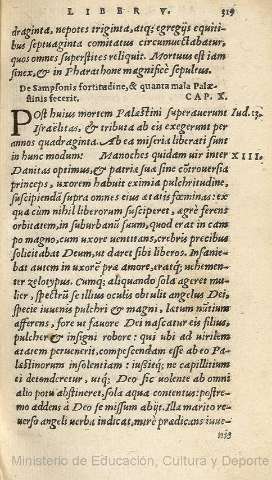 LIBER V. 319
draginta, nepotes triginta, atq; egregijs equiti-
bus septuaginta comitatus circumuectabatur,
quos omnes superstites reliquit. Mortuus est iam
senex, & in Pharathone magnificè sepultus.
De Sampsonis fortitudine, & quanta mala Palæ-
stinis fecerit. CAP. X.
POst huius mortem Palæstini superauerunt Iud. 13.
Israelitas, & tributa ab eis exegerunt per
annos quadraginta. Ab ea miseria liberati sunt
in hunc modum: Manoches quidam uir inter XIII.
Danitas optimus, & patriæ suæ sine cõtrouersia
princeps, uxorem habuit eximia pulchritudine,
suscipiendã supra omnes eius ætatis fœminas: ex
qua cum nihil liberorum susciperet, ægrè ferens
orbitatem, in suburbanũ suum, quod erat in cam
po magno, cum uxore uentitans, crebris precibus
solicitabat Deum, ut daret sibi liberos. Insanie-
bat autem in uxorẽ præ amore, eratq; uehemen-
ter zelotypus. Cumq; aliquando sola ageret mu-
lier, spectrũ se illius oculis obtulit angelus Dei,
specie iuuenis pulchri & magni, lætum nũtium
afferens, fore ut fauore Dei nascatur eis filius,
pulcher & insigni robore: qui ubi ad uirilem
ætatem peruenerit, compescendam esse ab eo Pa-
læstinorum insolentiam: iussitq; ne capillitium
ei detonderetur, utq; Deo sic uolente ab omni
alio potu abstineret, sola aqua contentus: postre-
mo addens à Deo se missum abijt. Illa marito re-
uerso angeli uerba indicat, mirè prædicans iuue-
nis
Ministerio de Educación, Cultura y Deporte